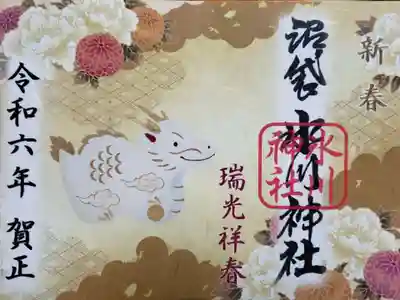 新春
沼袋 氷川神社
氷川
神社
瑞光祥春
令和六年 賀正